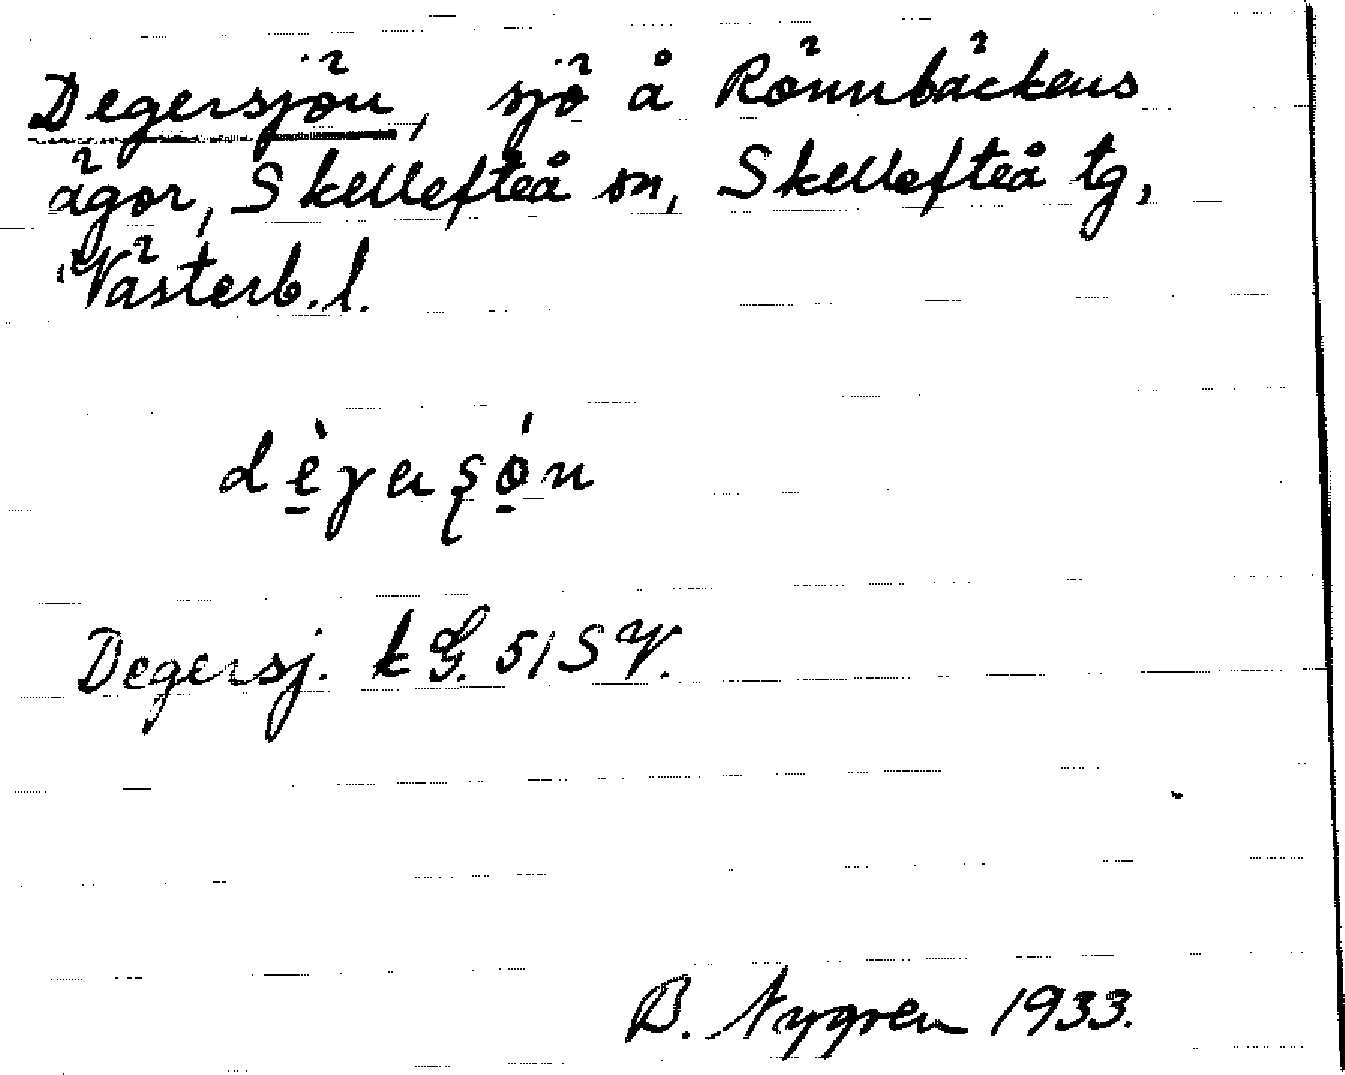 Degersjön, sjö å Rönnbäckens
ägor, Skellefteå sn, Skellefteå tg,
Västerb. l.
dè̱gersjö́n
Degersj. kG. 51 SV.
B. Nygren 1933.